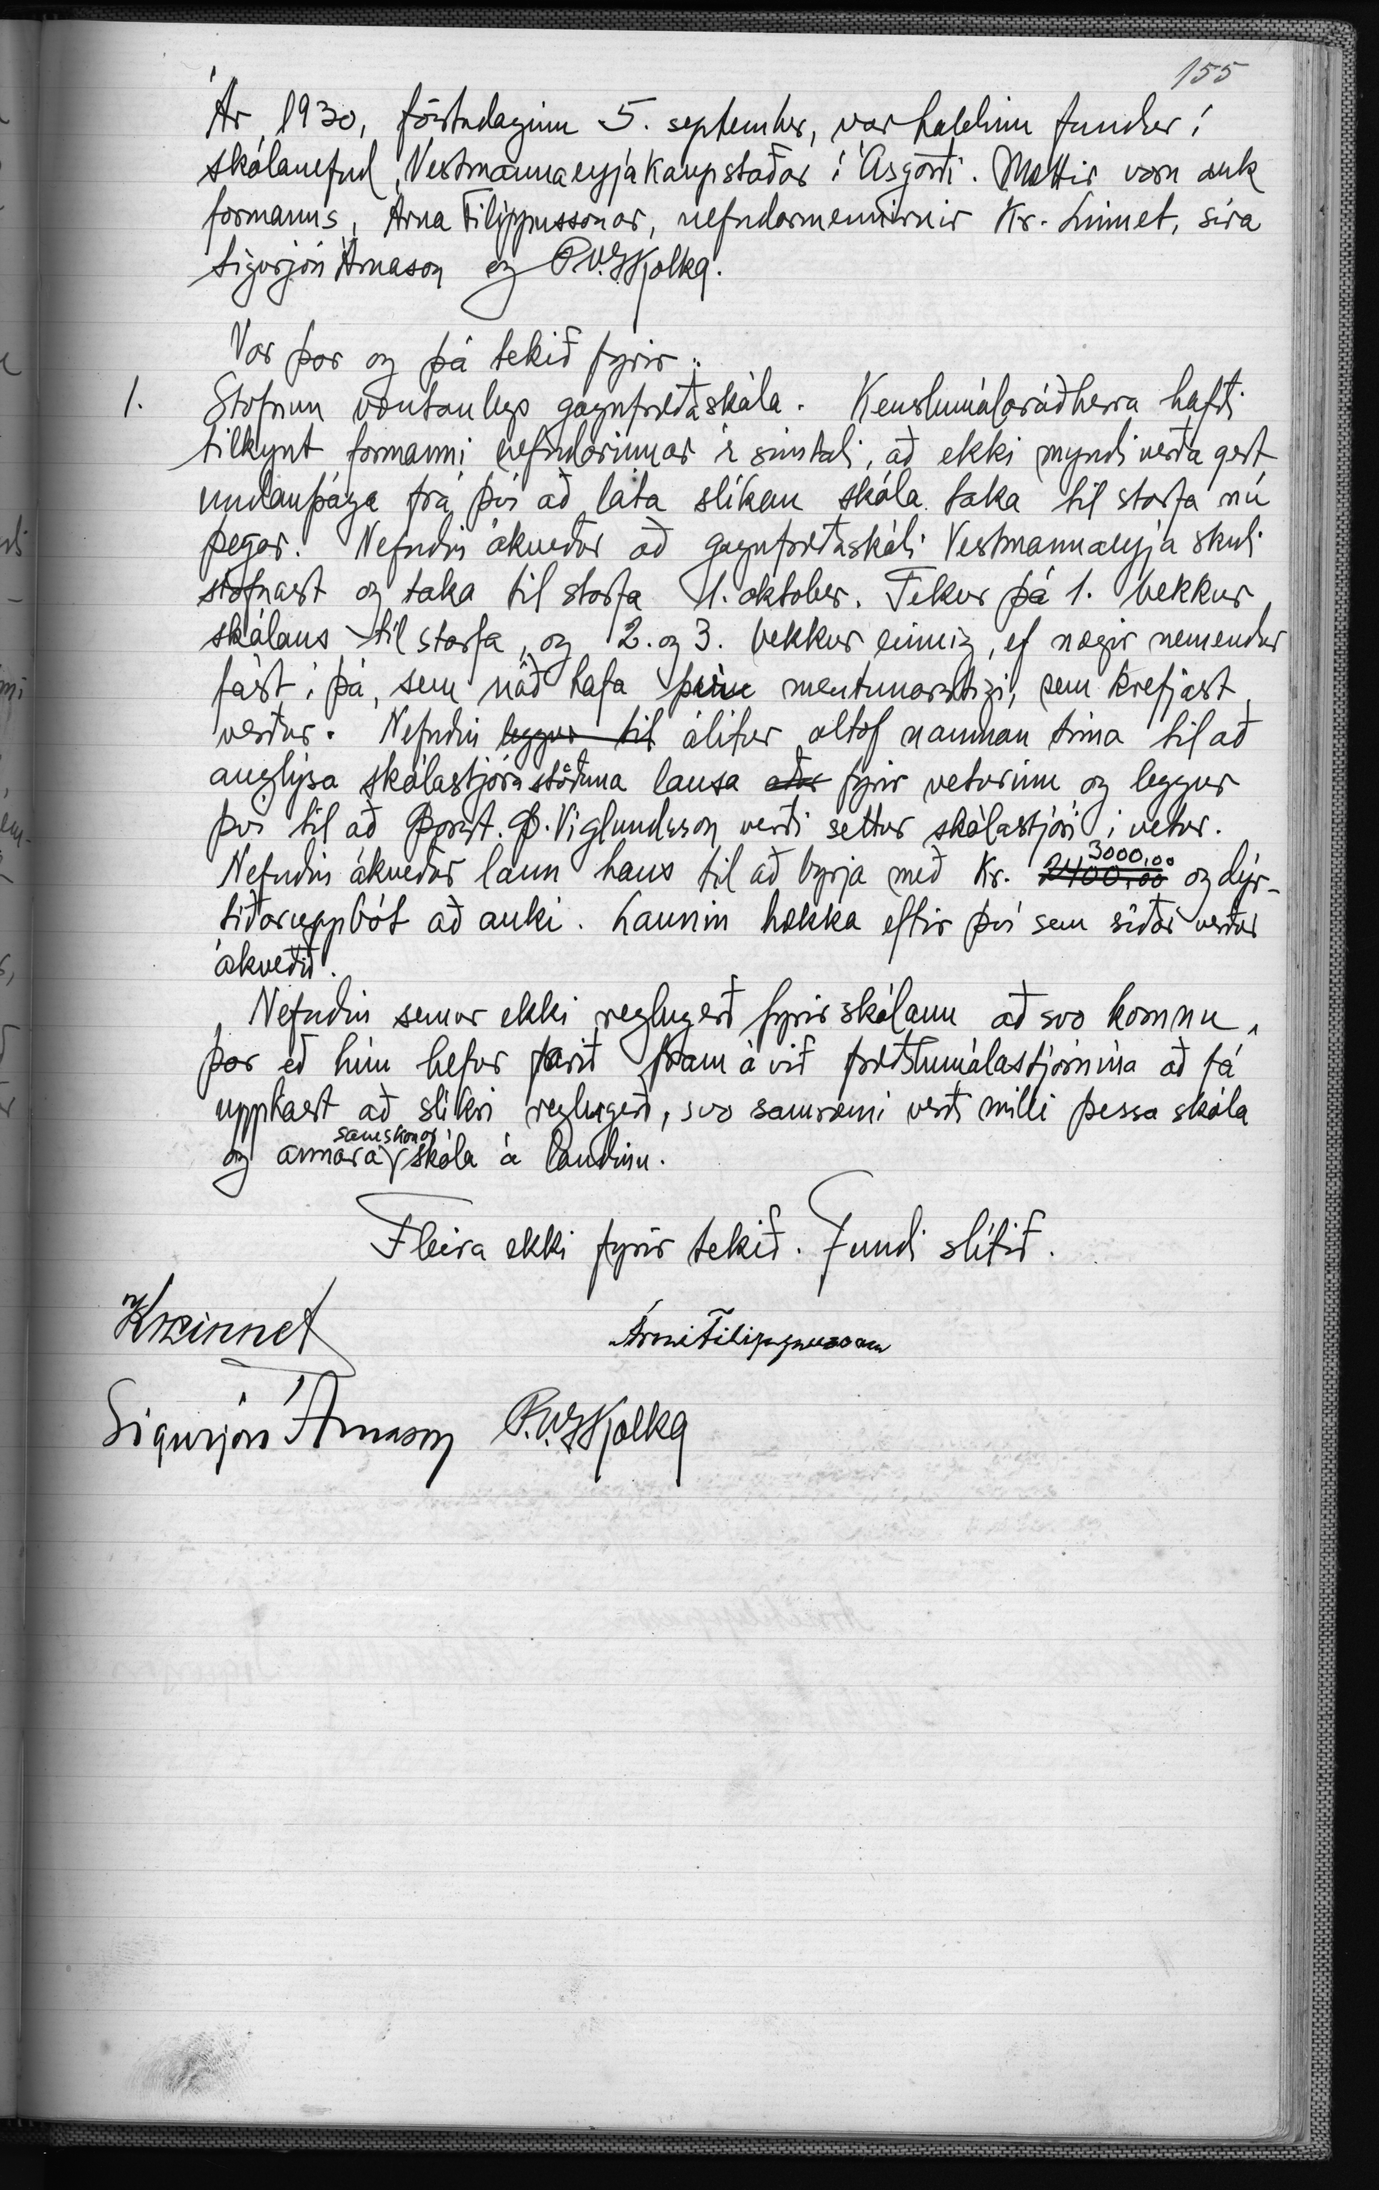 155
Ár 1930, föstudaginn 5. september, var haldinn fundur í
skólanefnd Vestmannaeyjakaupstaðar í Ásgarði. Mættir voru auk
formanns, Árna Filippussonar, nefndarmennirnir Kr. Linnet, síra
Sigurjón Árnason og P.V.G.Kolka.
Var þar og þá tekið fyrir:
1. Stofnun væntanlegs gagnfræðaskóla. Kenslumálaráðherra hafði
tilkynt formanni nefndarinnar í símtali, að ekki myndi verða gert
undanþága frá því að láta slíkan skóla taka til starfa nú
þegar. Nefndin ákveður að gagnfræðaskóli Vestmannaeyja skuli
stofnast og taka til starfa 1. oktober. Tekur þá 1. bekkur
skólans til starfa, og 2. og 3. bekkur einnig, ef nægir nemendur
fást í þá, sem náð hafa því mentunarstigi, sem krefjast
verður. Nefndin leggur til álítur altof nauman tíma til að
auglýsa skólastjórastöðuna lausa fyrir veturinn og leggur
því til að Þorst. Þ. Víglundsson verði settur skólastjóri í vetur.
Nefndin ákveður laun hans til að byrja með Kr. 2400,00 3000,00 og dýr-
tíðaruppbót að auki. Launin hækka eftir því sem síðar verður
ákveðið.
Nefndin semur ekki reglugerð fyrir skólann að svo komnu,
þar eð hún hefur farið fram á við fræðslumálastjórnina að fá
uppkast að slíkri reglugerð, svo samræmi verði milli þessa skóla
og annara samskonar skóla á landinu.
Fleira ekki fyrir tekið. Fundi slitið.
Kr Linnet
Árni Filippusson
Sigurjón Árnason P.V.G.Kolka